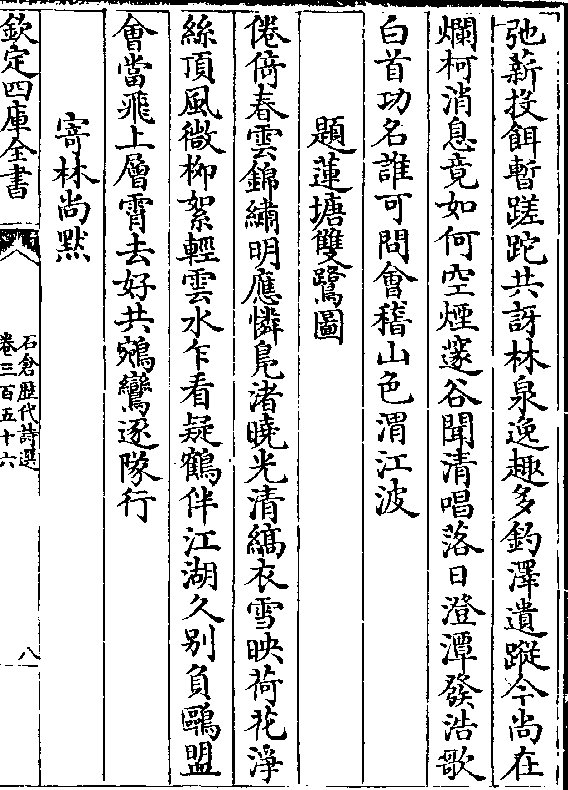 弛薪投餌暫蹉跎共訝林泉逸趣多釣澤遺蹤今尚在
爛柯消息竟如何空煙邃谷聞清唱落日澄潭發浩歌
白首功名誰可問會稽山色渭江波
題蓮塘雙鷺圖
倦倚春雲錦繡明應憐鳬渚曉光清縞衣雪映荷花淨
絲頂風微柳絮輕雲水乍看疑鶴伴江湖久别負鷗盟
會當飛上層霄去好共鵷鸞逐隊行
寄林尚黙
欽定四庫全書
石倉歴代詩選
卷三百五十六
八